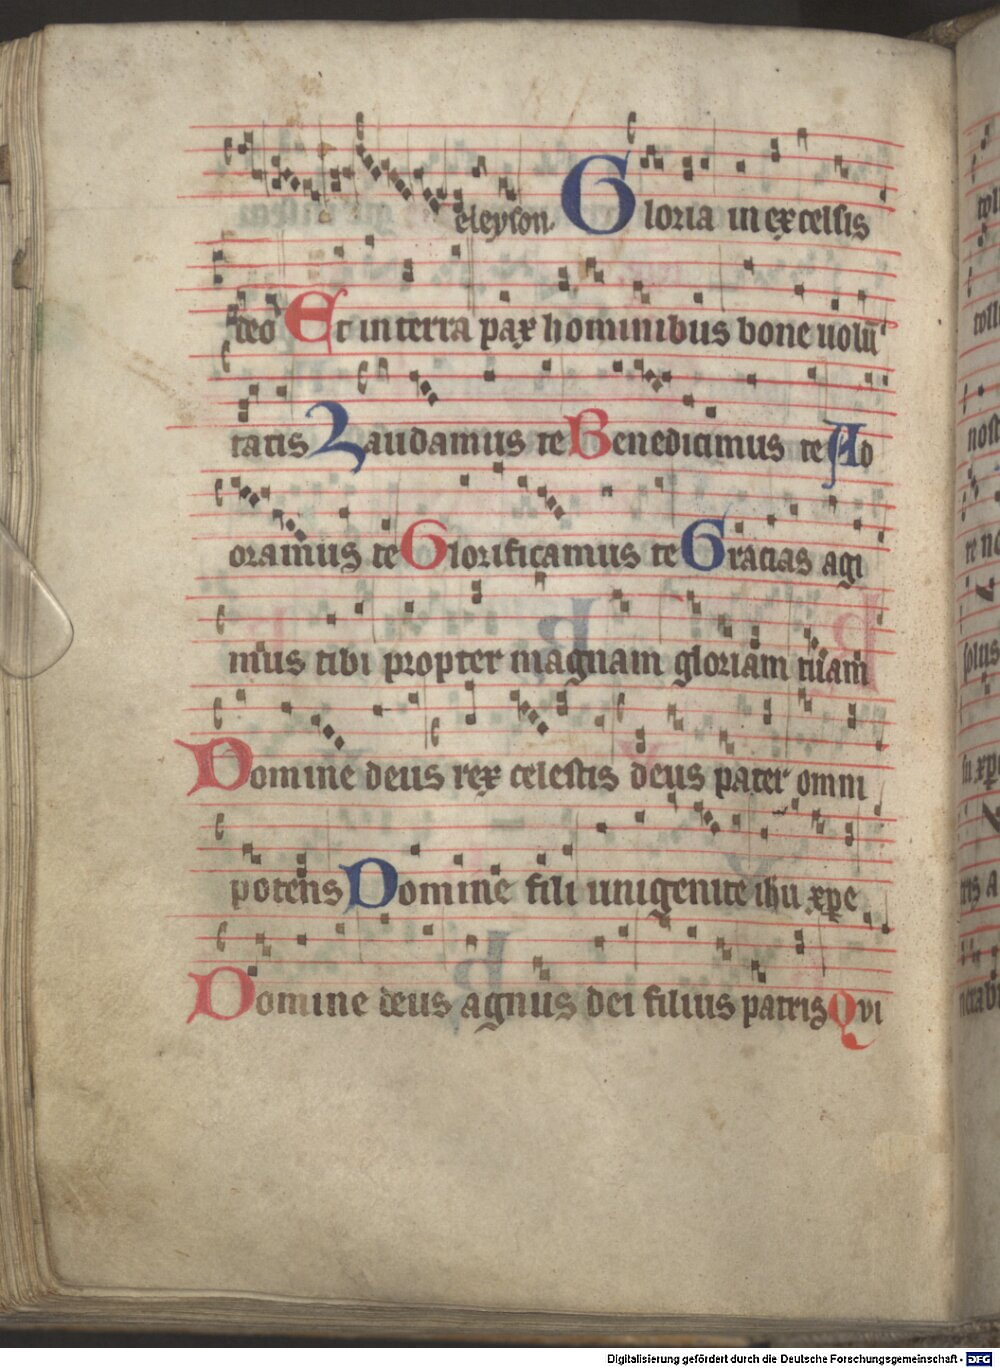 eleyson. Gloria in excelsis
deo Et in terra pax hominibus bone uolū
tatis Laudamus te Benedicimus te Ad
oramus te Glorificamus te Gracias agi
mus tibi propter magnam gloriam tuam
Domine deus rex celestis deus pater omni
potens Domine fili unigenite ihu xpe
Domine deus agnus dei filius patris Qui
Digitalisierung gefördert durch die Deutsche Forschungsgemeinschaft - DFG